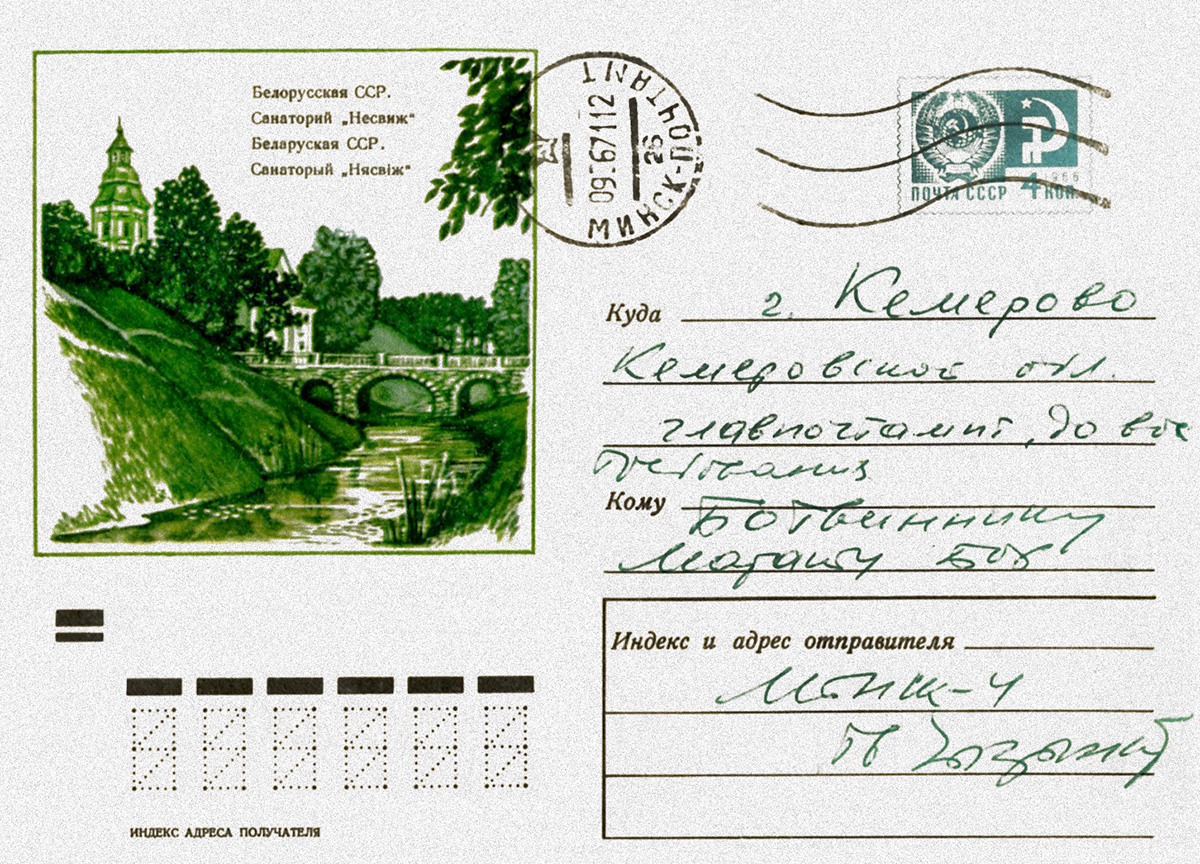 Белорусская ССР.
Санаторий „Несвиж“
Беларуская ССР.
Санаторый „Нясвіж“
МИНСК-ПОЧТАМТ
26
ПОЧТА СССР
4 КОП.
1966
Куда г. Кемерово
Кемеровской обл.
главпочтамт, до вос
требования
Кому Ботвиннику
Индекс и адрес отправителя
Минск-4
ИНДЕКС АДРЕСА ПОЛУЧАТЕЛЯ